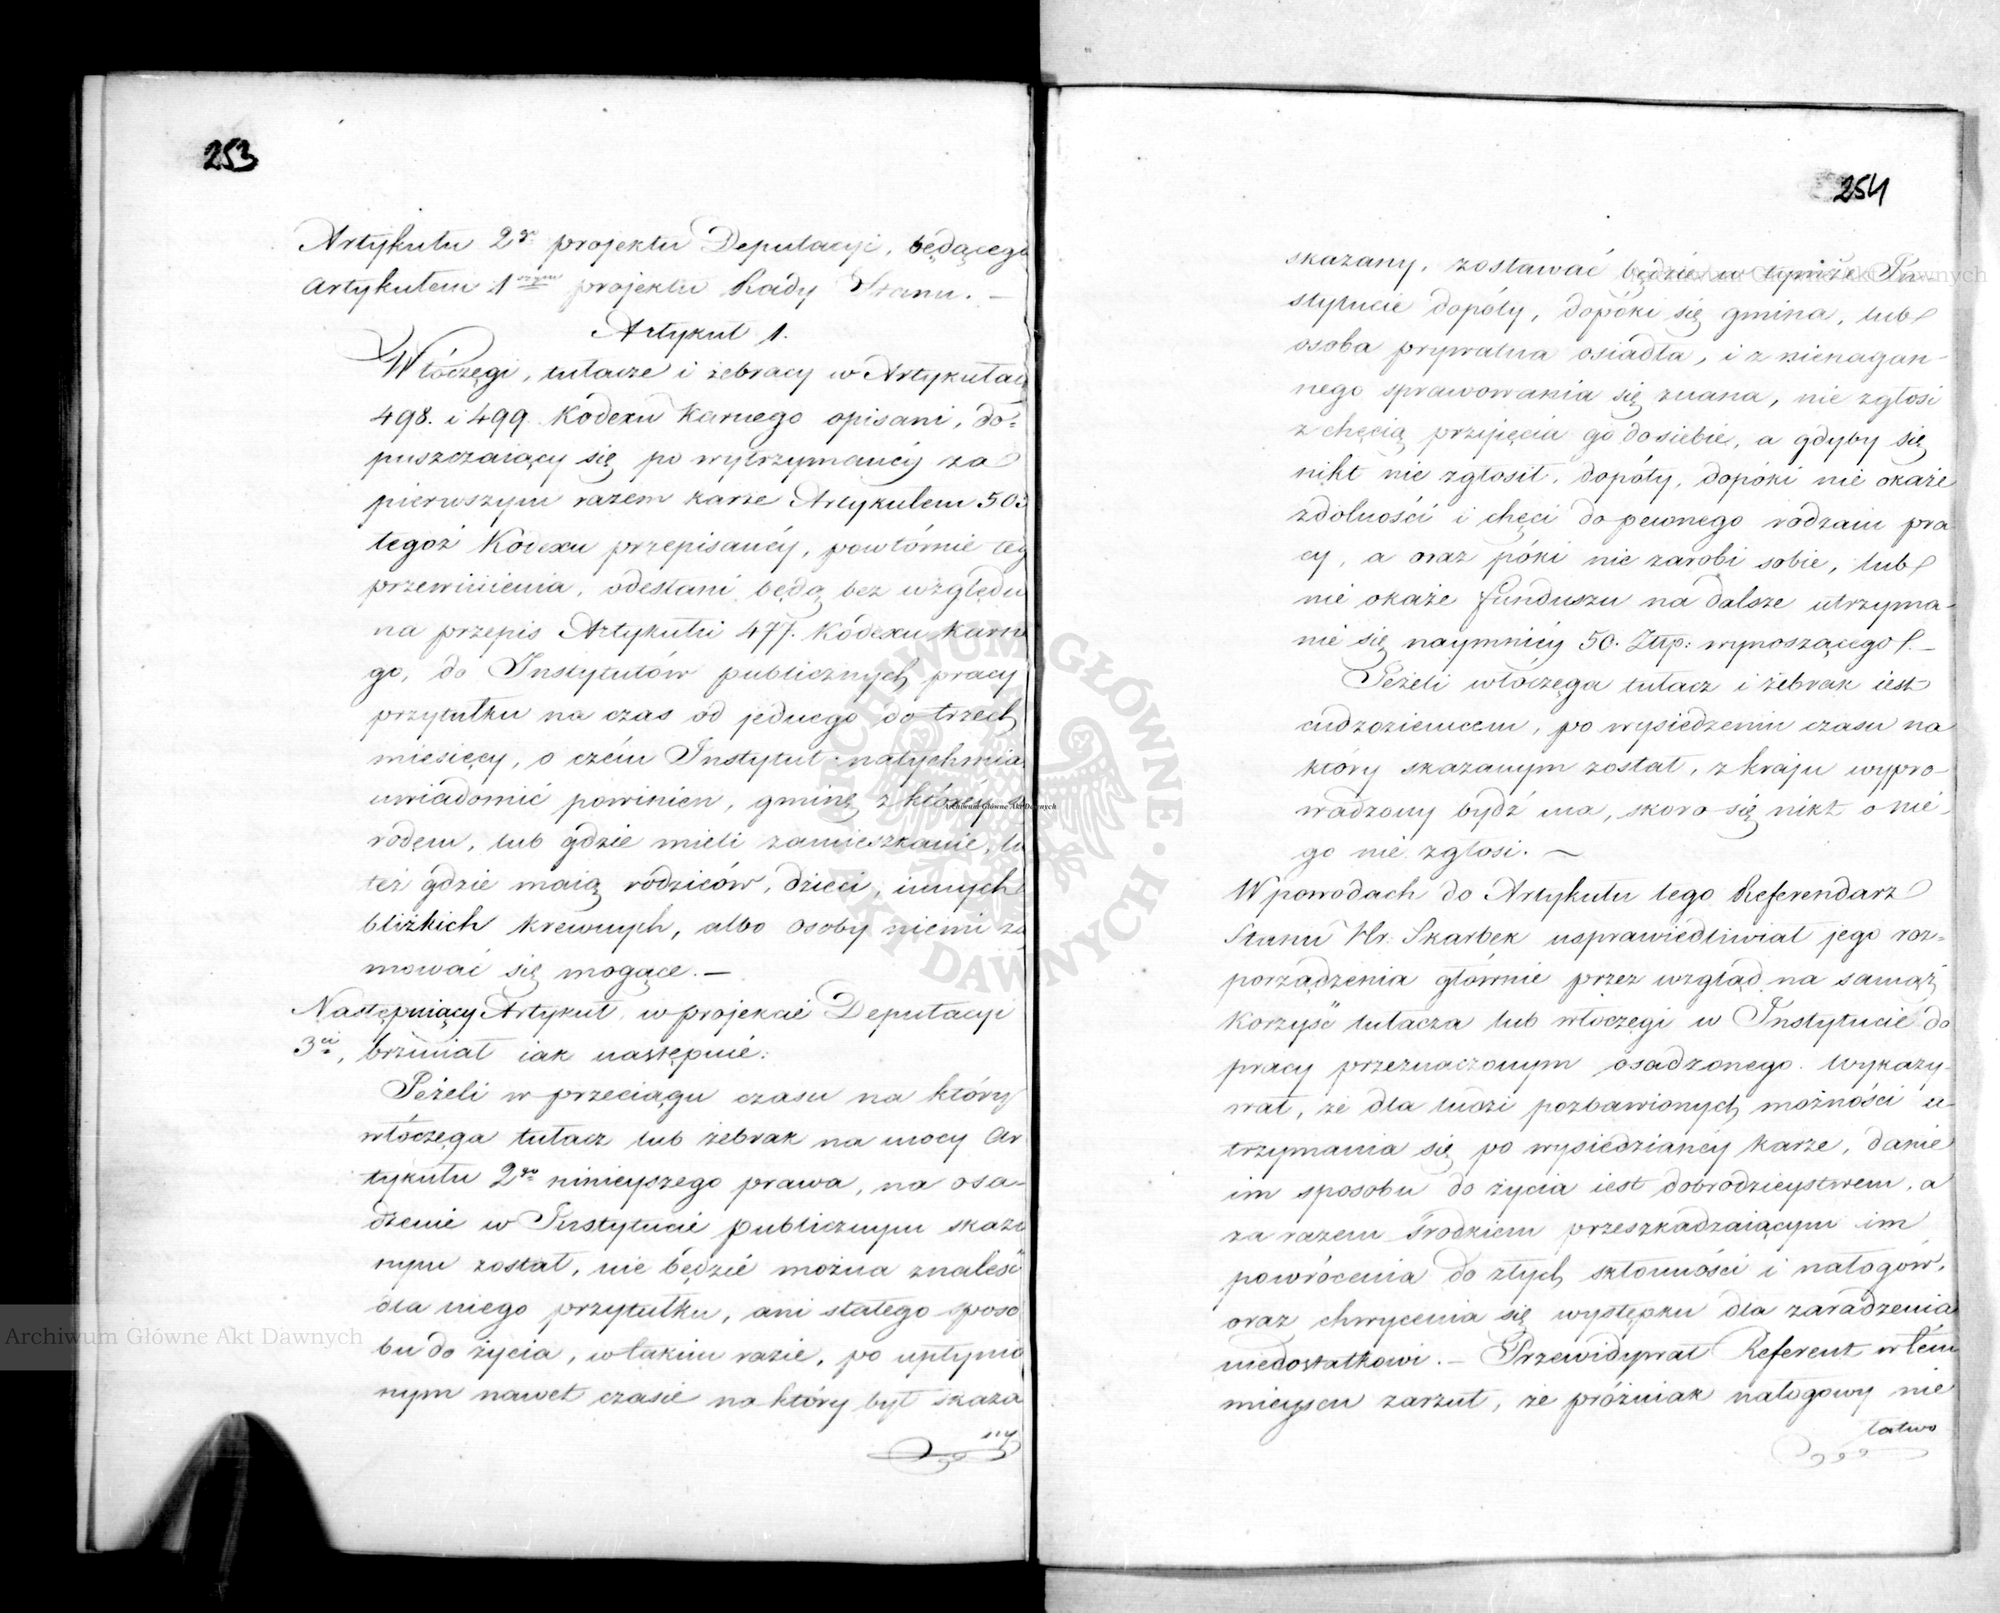 253
Artykułu 2go projektu Deputacyi, będącego
Artykułem 1wszym projektu Rady Stanu. —
Artykuł 1.
Włóczęgi, tułacze i żebracy w Artykułach
498. i 499. Kodexu Karnego opisani, do-
puszczaiący się po wytrzymanéy za
pierwszym razem karze Artykułem 503
tegoż Kodexu przepisanéy, powtórnie teg
przewinienia, odesłani będą bez względu
na przepis Artykułu 477. Kodexu Karne
go, do Instytutów publicznych pracy
przytułku na czas od jednego do trzech
miesięcy, o czém Instytut natychmia
uwiadomić powinien, gminę z któréy są
rodem, lub gdzie mieli zamieszkanie, lu
też gdzie maią rodziców, dzieci, innych
bliżkich krewnych, albo osoby niemi za
mować się mogące. —
Następuiący Artykuł w projekcie Deputacyi
3ci, brzmiał iak następuie:
Jeżeli w przeciągu czasu na który
włóczęga tułacz lub żebrak na mocy Ar
tykułu 2go ninieyszego prawa, na osa-
dzenie w Instytucie publicznym skaza
nym został, nie będzie można znaleść
dla niego przytułku, ani stałego sposo
bu do życia, w takim razie, po upłynio
nym nawet czasie na który był skaza
ny
254
skazany, zostawać będzie w tymże In-
stytucie dopóty, dopóki się gmina, lub
osoba prywatna osiadła, i z nienagan-
nego sprawowania się znana, nie zgłosi
z chęcią przyięcia go do siebie, a gdyby się
nikt nie zgłosił, dopóty, dopóki nie okaże
zdolności i chęci do pewnego rodzaiu pra
cy, a oraz póki nie zarobi sobie, lub
nie okaże funduszu na dalsze utrzyma-
nie się naymniéy 50. Złtp: wynoszącego. —
Jeżeli włóczęga tułacz i żebrak iest
cudzoziemcem, po wysiedzeniu czasu na
który skazanym został, z kraju wypro-
wadzony bydź ma, skoro się nikt o nie-
go nie zgłosi. —
W powodach do Artykułu tego Referendarz
Stanu Hr: Skarbek usprawiedliwiał jego roz-
porządzenia głównie przez wzgląd na samąż
korzyść tułacza lub włóczęgi w Instytucie do
pracy przeznaczonym osadzonego. Wykazy-
wał, że dla ludzi pozbawionych możności u-
trzymania się po wysiedzianéy karze, danie
im sposobu do życia iest dobrodzieystwem, a
za razem środkiem przeszkadzaiącym im
powrócenia do złych skłonności i nałogów,
oraz chwycenia się występku dla zaradzenia
niedostatkowi. — Przewidywał Referent w tém
mieyscu zarzut, że próżniak nałogowy nie
łatwo
Archiwum Główne Akt Dawnych
Archiwum Główne Akt Dawnych
Archiwum Główne Akt Dawnych
ARCHIWUM GŁÓWNE AKT DAWNYCH